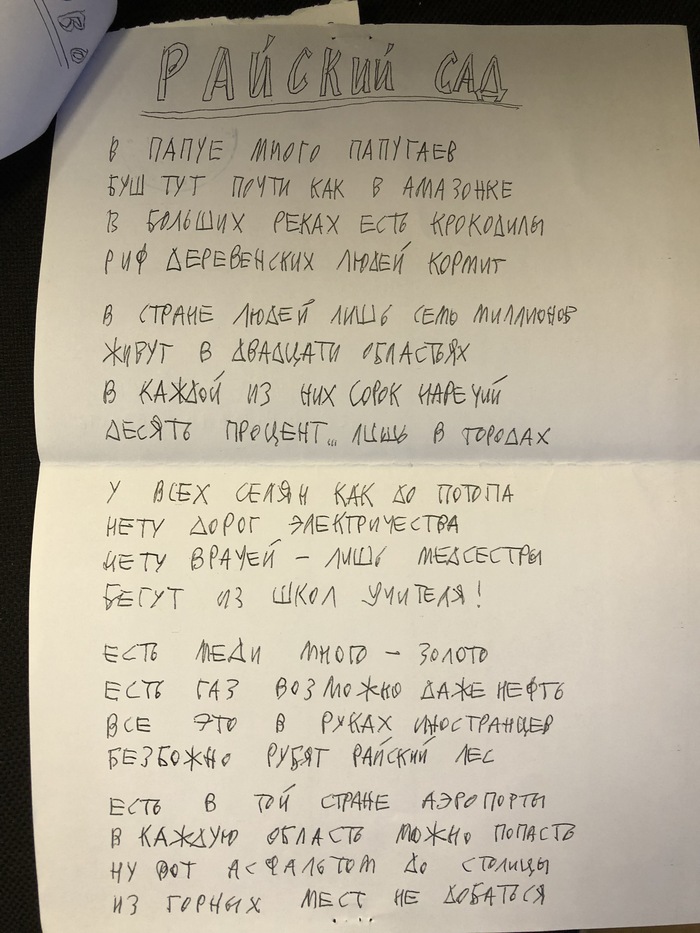 РАЙСКИЙ САД
В ПАПУЕ МНОГО ПАПУГАЕВ
БУШ ТУТ ПОЧТИ КАК В АМАЗОНКЕ
В БОЛЬШИХ РЕКАХ ЕСТЬ КРОКОДИЛЫ
РИФ ДЕРЕВЕНСКИХ ЛЮДЕЙ КОРМИТ
В СТРАНЕ ЛЮДЕЙ ЛИШЬ СЕМЬ МИЛЛИОНОВ
ЖИВУТ В ДВАДЦАТИ ОБЛАСТЬЯХ
В КАЖДОЙ ИЗ НИХ СОРОК НАРЕЧИЙ
ДЕСЯТЬ ПРОЦЕНТ... ЛИШЬ В ГОРОДАХ
У ВСЕХ СЕЛЯН КАК ДО ПОТОПА
НЕТУ ДОРОГ ЭЛЕКТРИЧЕСТВА
НЕТУ ВРАЧЕЙ – ЛИШЬ МЕДСЕСТРЫ
БЕГУТ ИЗ ШКОЛ УЧИТЕЛЯ!
ЕСТЬ МЕДИ МНОГО – ЗОЛОТО
ЕСТЬ ГАЗ ВОЗМОЖНО ДАЖЕ НЕФТЬ
ВСЕ ЭТО В РУКАХ ИНОСТРАНЦЕВ
БЕЗБОЖНО РУБЯТ РАЙСКИЙ ЛЕС
ЕСТЬ В ТОЙ СТРАНЕ АЭРОПОРТЫ
В КАЖДУЮ ОБЛАСТЬ МОЖНО ПОПАСТЬ
НУ ВОТ АСФАЛЬТОМ ДО СТОЛИЦЫ
ИЗ ГОРНЫХ МЕСТ НЕ ДОБАТЬСЯ